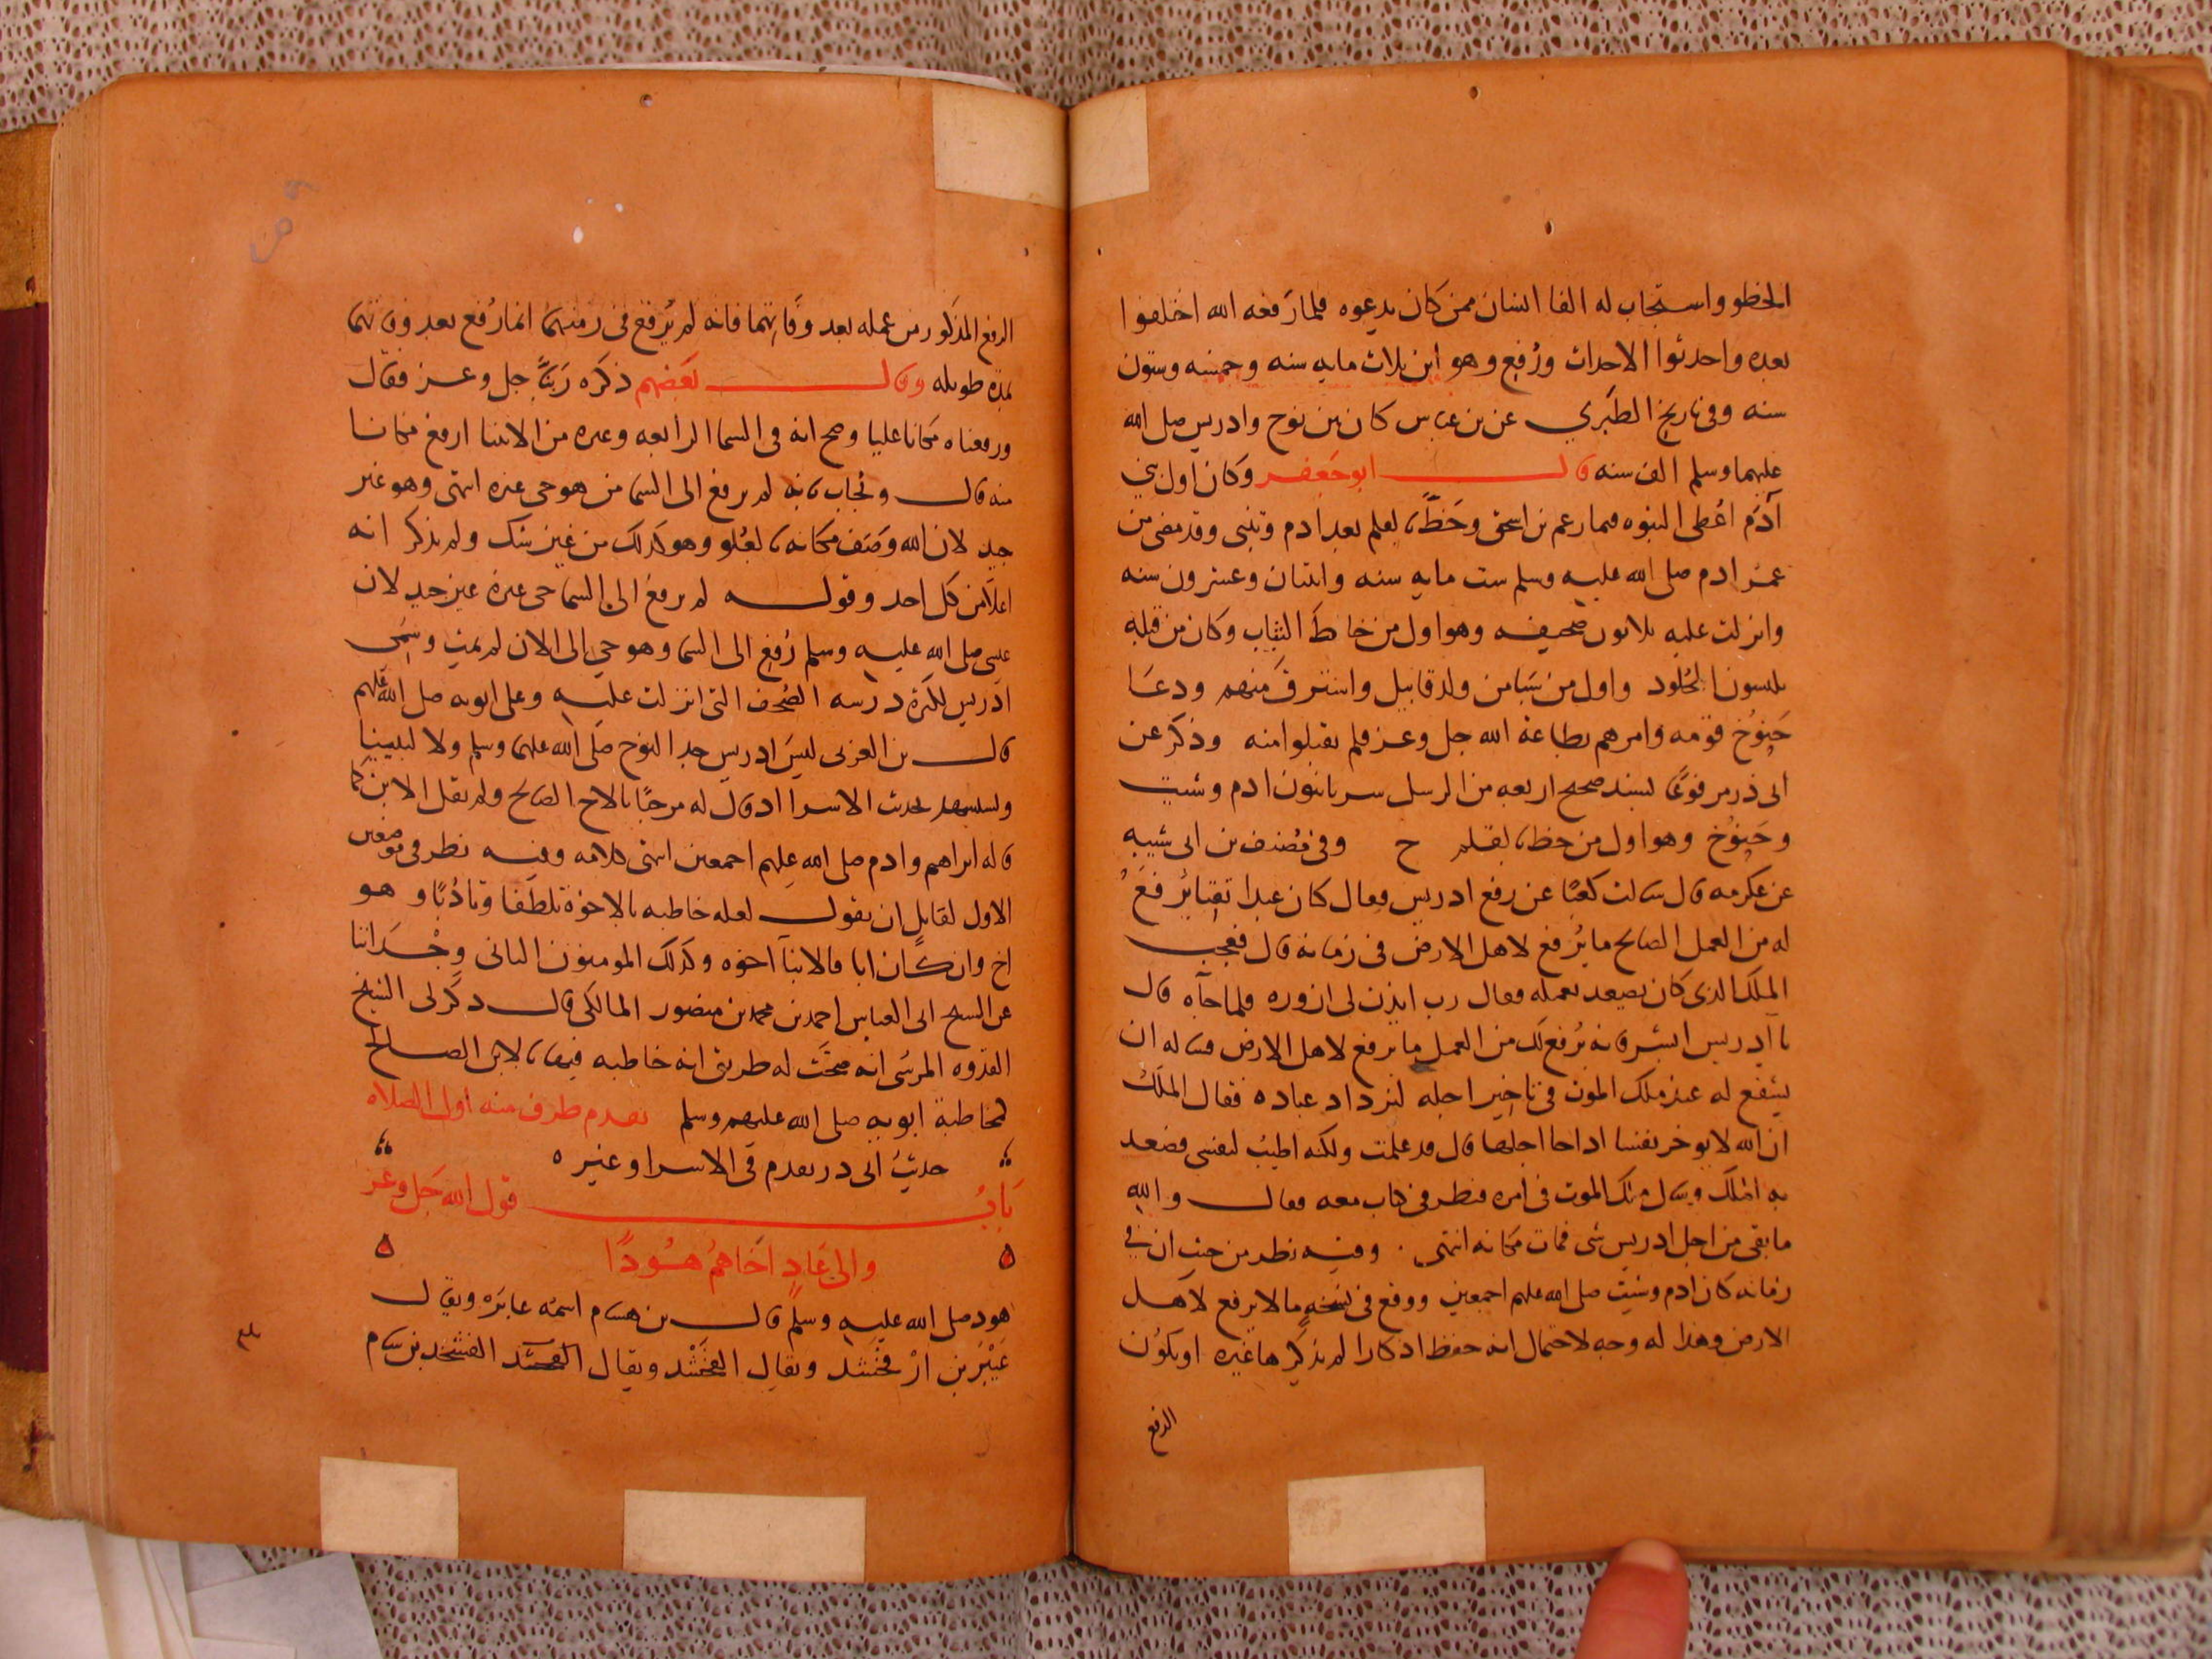 الخطو واستجاب له الفا انسان ممن كان يدعوه فلما رفعه الله اختلفوا
بعده واحدثوا الاحداث ورفع وهو ابن ثلاث مايه سنه وخمسه وستون
سنه وفى تاريخ الطبري عن بن عباس كان بين نوح وادريس صلى الله
عليهما وسلم الف سنه قال ابو جعفر وكان اول بني
آدم اعطى النبوه فيما زعم بن اسحق وخط بالقلم بعد ادم وتنبى وقد مضى من
عمر ادم صلى الله عليه وسلم ست مايه سنه واثنتان وعشرون سنه
وانزلت عليه ثلاثون صحيفه وهو اول من خاط الثياب وكان من قبله
يلبسون الجلود واول من سبا من ولد قابيل واسترق منهم ودعا
خنوخ قومه وامرهم بطاعة الله جل وعز فلم يقبلوا منه وذكر عن
ابى ذر مرفوعا بسند صحيح اربعه من الرسل سريانيون ادم وشيت
وخنوخ وهو اول من خط بالقلم ح وفى مصنف بن ابى شيبه
عن عكرمه قال سالت كعبا عن رفع ادريس فقال كان عبدا تقيا يرفع
له من العمل الصالح ما يرفع لاهل الارض فى زمانه قال فعجب
الملك الذى كان يصعد بعمله فقال رب ايذن لى ازوره فلما جآه قال
يا ادريس ابشر فانه يرفع لك من العمل ما يرفع لاهل الارض فساله ان
يشفع له عند ملك الموت فى تاخير اجله ليزداد عباده فقال الملك
ان الله لا يوخر نفسا اذا جا اجلها قال قد علمت ولكنه اطيب لنفسى فصعد
به الملك وسال ملك الموت فى امره فنظر فى كتاب معه فقال والله
ما بقى من اجل ادريس شى فمات مكانه انتهى وفيه نظر من حيث ان في
زمانه كان ادم وشيت صلى الله عليهم اجمعين ووقع فى نسخه ما لا يرفع لاهل
الارض وهذا له وجه لاحتمال انه حفظ اذكارا لم يذكرها غيره او يكون
الرفع
الرفع المذكور من عمله بعد وفاتهما فانه لم يرفع فى زمنهما انما رفع بعد وفاتهما
بمدة طويله وقال بعضهم ذكره ربنا جل وعز فقال
ورفعناه مكانا عليا وصح انه فى السما الرابعه وغيره من الانبيا ارفع مكانا
منه قال ونجاب بانه لم يرفع الى السما من هو حى غيره انتهى وهو غير
جيد لان الله وصف مكانه بالعلو وهو كذلك من غير شك ولم يذكر انه
اعلا من كل احد وقوله لم يرفع الى السما حى غيره غير جيد لان
عيسى صلى الله عليه وسلم رفع الى السما وهو حي الى الان لم يمت وسمى
ادريس لكثرة درسه الصحف التى انزلت عليه وعلى ابويه صلى الله عليهم
قال بن العربى ليس ادريس جدا لنوح صلى الله عليهما وسلم ولا لنبينا
ويستشهد بحديث الاسرا اذ قال له مرحبا بالاخ الصالح ولم يقل الابن كما
قاله ابراهيم وادم صلى الله عليهم اجمعين انتهى كلامه وفيه نظر فى موضعين
الاول لقايل ان يقول لعله خاطبه بالاخوة تلطفا وتادبا وهو
اخ وان كان ابا فالانبيا اخوه وكذلك المومنون الثانى وجدانا
عن الشيخ ابى العباس احمد بن محمد بن منصور المالكى قال ذكر لى الشيخ
القدوه المرسى انه صحت له طريق انه خاطبه فيها بالابن الصالح
كمخاطبة ابويه صلى الله عليهم وسلم تقدم طرف منه اول الصلاه
حديث ابى ذر تقدم فى الاسرا وغيره
باب قول الله جل وعز
والى عاد اخاهم هودا
هود صلى الله عليه وسلم قال بن هشام اسمه عابر ويقال
عيبر بن ارفخشد ويقال الفخشد ويقال الفشخد بن سام